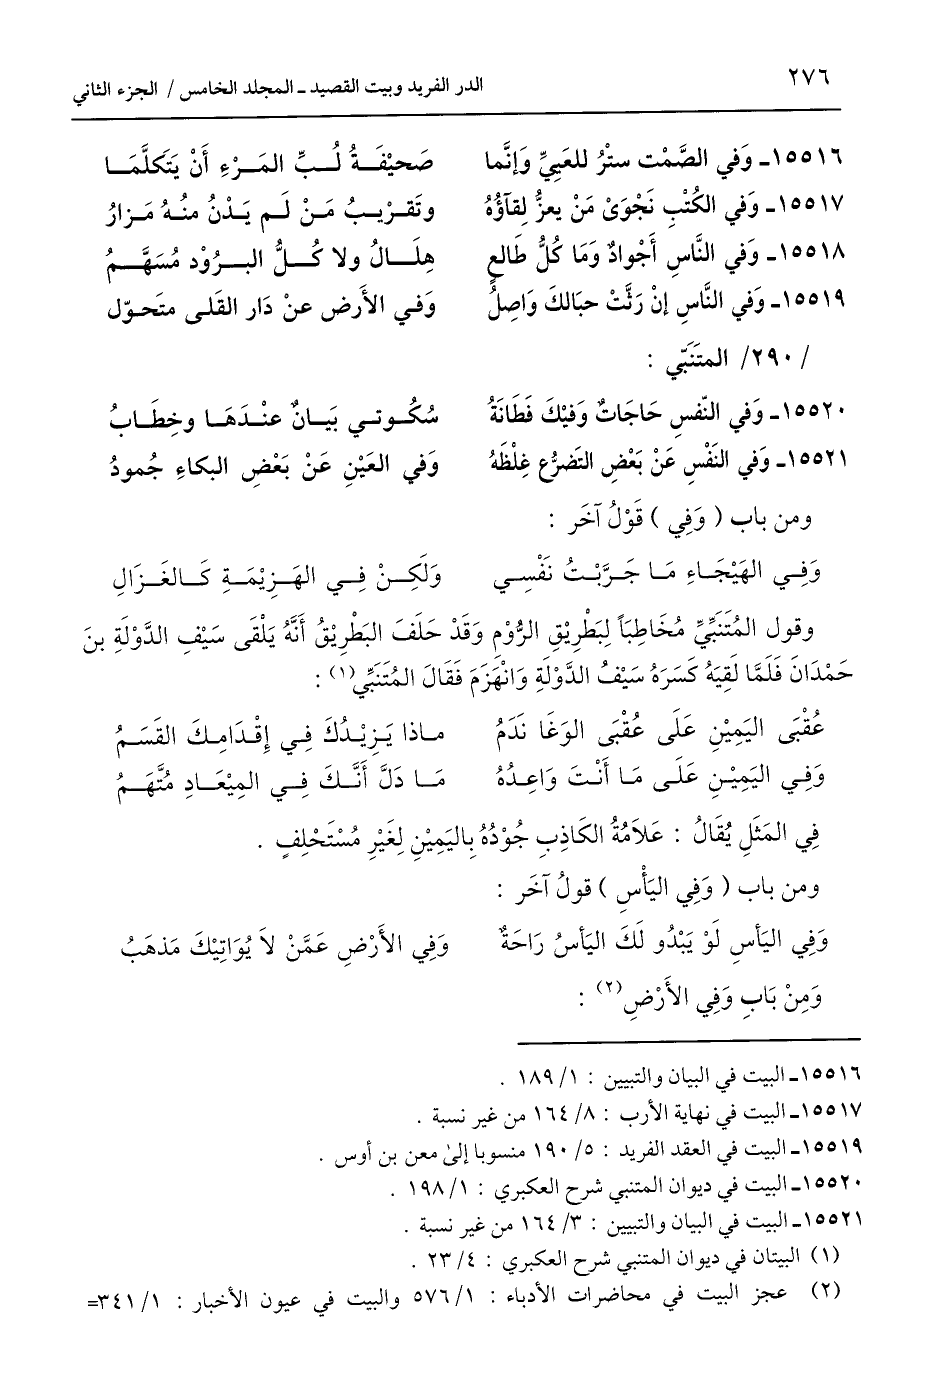 ٢٧٦ الدر الفريد وبيت القصيد ـ المجلد الخامس / الجزء الثاني
١٥٥١٦ـ وَفي الصَّمْت سترٌ للعَييِّ وَإنَّما صَحيْفَةُ لُبِّ المَرْءِ أَنْ يَتَكلَّمَا
١٥٥١٧ـ وَفي الكُتْبِ نَجْوَىْ مَنْ يعزُّ لِقآؤُهُ وتَقرْيبُ مَنْ لَم يَدْنُ منهُ مَزارُ
١٥٥١٨ـ وَفي النَّاسِ أَجْوادٌ وَمَا كُلُّ طَالعٍ هِلَالُ ولا كُلُّ البرُوْد مُسَهَّمُ
١٥٥١٩ـ وَفي النَّاسِ إنْ رَثَّتْ حبَالكَ وَاصِلُ وَفي الأَرض عنْ دَار القَلى متحوّل
/ ٢٩٠/ المتَنَبّي :
١٥٥٢٠ـ وَفي النّفسِ حَاجَاتٌ وَفيْكَ فَطَانَةُ سُكُوتي بَيَانٌ عنْدَهَا وخِطَابُ
١٥٥٢١ـ وَفي النَفْسِ عَنْ بَعْضِ التَضرُّع غِلْظَهُ وَفي العَيْنِ عَنْ بَعْضِ البكاءِ جُمودُ
ومن باب ( وَفِي ) قَوْلُ آخَر :
وَفِي الهَيْجَاءِ مَا جَرَّبْتُ نَفْسِي وَلَكِنْ فِي الهَزِيْمَةِ كَالغَزَالِ
وقول المُتَنَبِّيِّ مُخَاطِبَاً لِبَطْرِيْقِ الرُّوْمِ وَقَدْ حَلَفَ البَطْرِيْقُ أَنَّهُ يَلْقَى سَيْفِ الدَّوْلَةِ بن
حَمْدَانَ فَلَمَّا لَقِيَهُ كَسَرَهُ سَيْفُ الدَّوْلَةِ وَانْهَزَمَ فَقَالَ المُتَنَبِّي(١) :
عُقْبَى اليَمِيْنِ عَلَى عُقْبَى الوَغَا نَدَمُ ماذا يَزِيْدُكَ فِي إِقْدَامِكَ القَسَمُ
وَفِي اليَمِيْنِ عَلَى مَا أَنْتَ وَاعِدُهُ مَا دَلَّ أَنَّكَ فِي المِيْعَادِ مُتَّهَمُ
فِي المَثَلِ يُقَالُ : عَلاَمَةُ الكَاذِبِ جُوْدُهُ بِاليَمِيْنِ لِغَيْرِ مُسْتَحْلِفٍ .
ومن باب ( وَفِي اليَأْسِ ) قولُ آخَر :
وَفِي اليَأسِ لَوْ يَبْدُو لَكَ اليَأسُ رَاحَةٌ وَفِي الأَرْضِ عَمَّنْ لاَ يُوَاتِيْكَ مَذهَبُ
وَمِنْ بَابِ وَفِي الأَرْضِ(٢) :
١٥٥١٦ـ البيت في البيان والتبيين : ١/ ١٨٩ .
١٥٥١٧ـ البيت في نهاية الأرب : ٨/ ١٦٤ من غير نسبة .
١٥٥١٩ـ البيت في العقد الفريد : ٥/ ١٩٠ منسوبا إلى معن بن أوس .
١٥٥٢٠ـ البيت في ديوان المتنبي شرح العكبري : ١/ ١٩٨ .
١٥٥٢١ـ البيت في البيان والتبيين : ٣/ ١٦٤ من غير نسبة .
(١) البيتان في ديوان المتنبي شرح العكبري : ٤/ ٢٣ .
(٢) عجز البيت في محاضرات الأدباء : ١/ ٥٧٦ والبيت في عيون الأخبار : ١/ ٣٤١=